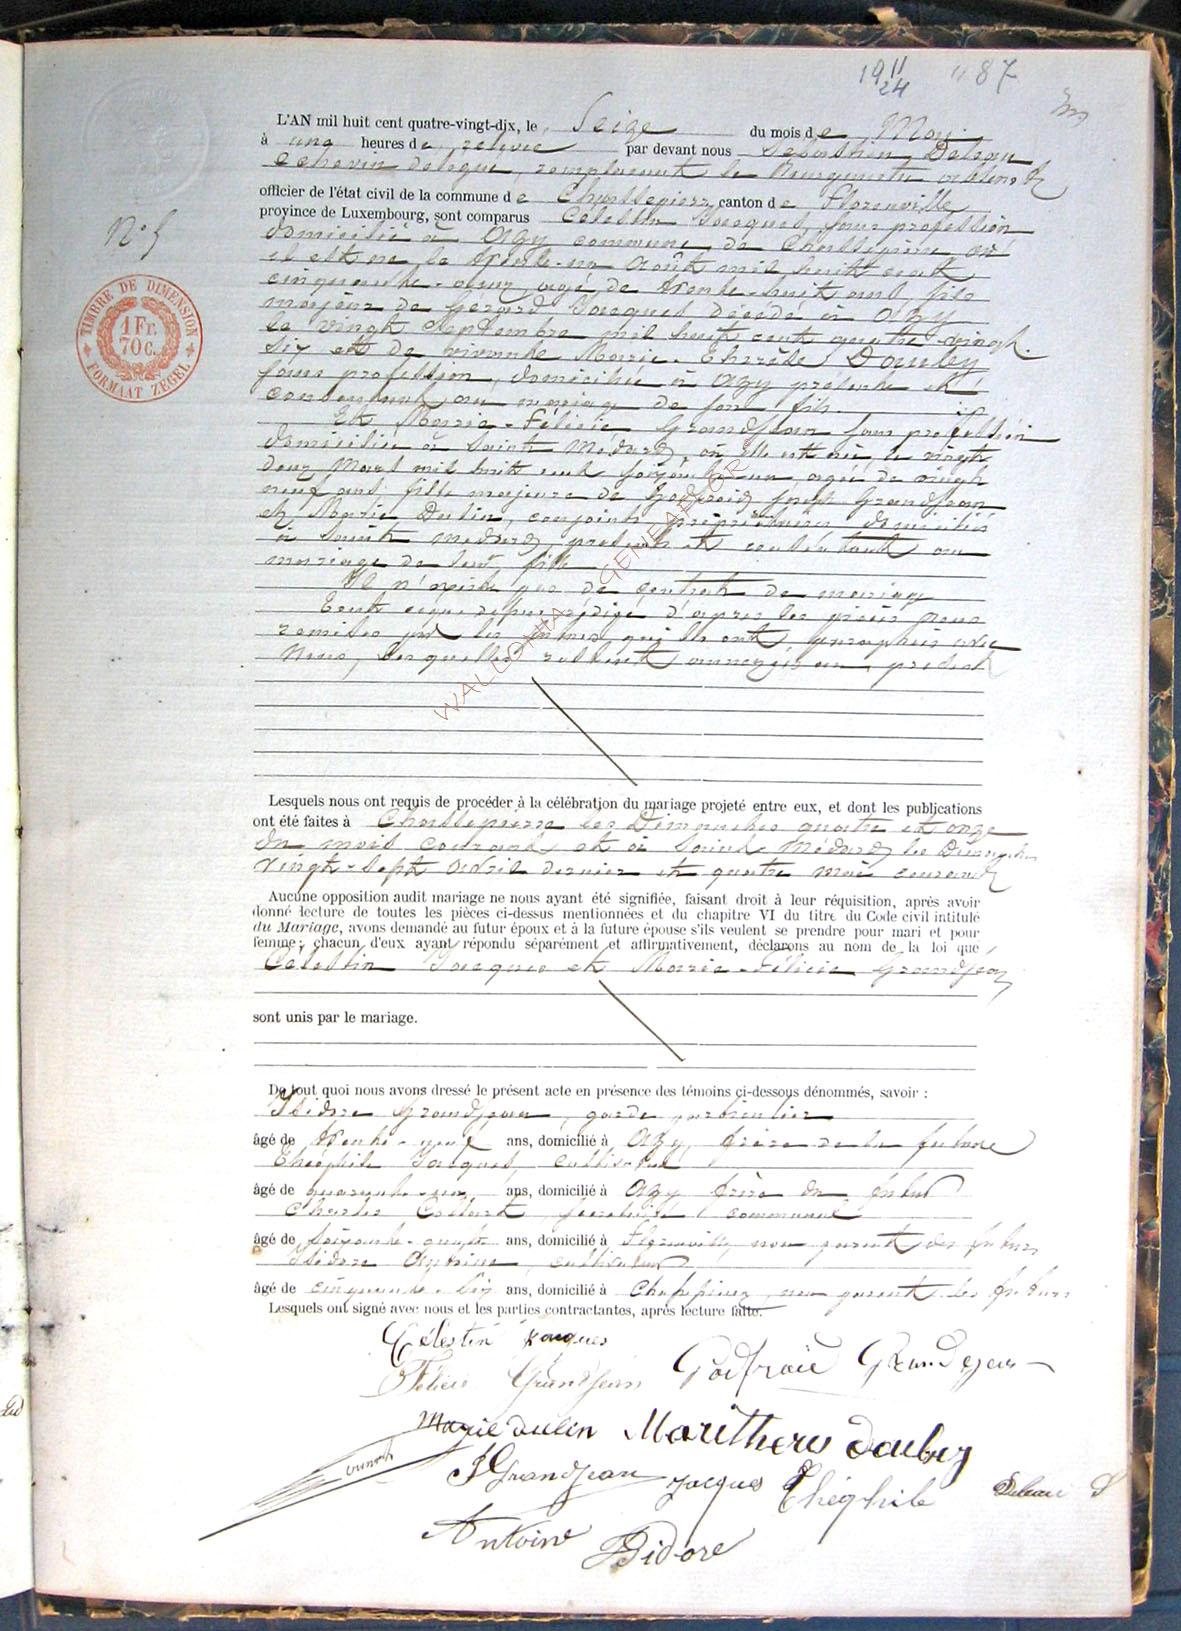 1911 " 87
24
L'AN mil huit cent quatre-vingt-dix, le Seize du mois de May
à une heures de relevée par devant nous Sébastien Deleau
Echevin délégué, remplaçant le Bourgmestre
officier de l'état civil de la commune de Chassepierre, canton de Florenville
province de Luxembourg, sont comparus Célestin Jacques, sans profession
N° 5
domicilié à Azy commune de Chassepierre, où
il est né le trente-un Août mil huit cent
cinquante-un, agé de trente-huit ans, fils
majeur de Gérard Jacques décédé à Azy
le vingt Septembre mil huit cent quatre-vingt-
six et de vivante Marie-Thérèse Douby
sans profession, domiciliée à Azy présente et
consentant au mariage de son fils.
TIMBRE DE DIMENSION
1 Fr.
70 c.
FORMAAT ZEGEL
Et Marie-Félicie Grandjean sans profession
domiciliée à Saint Médard, où elle est née le vingt
deux Mars mil huit cent soixante-un, agée de vingt
neuf ans, fille majeure de Godfroid Joseph Grandjean
et Marie Dulin, conjoints propriétaires domiciliés
à Saint Médard, présents et consentant au
mariage de leur fille
Il n'existe pas de contrat de mariage
Tout ce que dessus rédigé d'après les pièces nous
remises par les parties qui les ont paraphées avec
Nous, lesquelles restent annexées au présent
WALLONIA GENEAP
Lesquels nous ont requis de procéder à la célébration du mariage projeté entre eux, et dont les publications
ont été faites à Chassepierre les Dimanches quatre et onze
du mois courant et à Saint Médard les Dimanches
vingt-sept Avril dernier et quatre mai courant
Aucune opposition audit mariage ne nous ayant été signifiée, faisant droit à leur réquisition, après avoir
donné lecture de toutes les pièces ci-dessus mentionnées et du chapitre VI du titre du Code civil intitulé
du Mariage, avons demandé au futur époux et à la future épouse s'ils veulent se prendre pour mari et pour
femme; chacun d'eux ayant répondu séparément et affirmativement, déclarons au nom de la loi que
Célestin Jacques et Marie-Félicie Grandjean
sont unis par le mariage.
De tout quoi nous avons dressé le présent acte en présence des témoins ci-dessous dénommés, savoir :
Isidore Grandjean, garde particulier
âgé de trente-neuf ans, domicilié à Azy, frère de la future
Théophile Jacques, cultivateur
âgé de quarante-un ans, domicilié à Azy frère du futur
Charles Collart, secrétaire communal
âgé de soixante-quatre ans, domicilié à Florenville, non parent des futurs
Isidore Antoine, cultivateur
âgé de cinquante-six ans, domicilié à Chassepierre, non parent des futurs
Lesquels ont signé avec nous et les parties contractantes, après lecture faite.
Célestin Jacques
Félicie Grandjean Godfroid Grandjean
Marie dulin Marithères Douby
J Grandjean Jacques Théophile Deleau S
Antoine Isidore